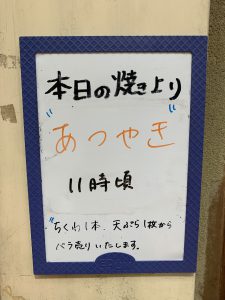 本日の焼き上り
"あつやき"
11時頃
"ちくわ1本、天ぷら1枚から
バラ売りいたします。